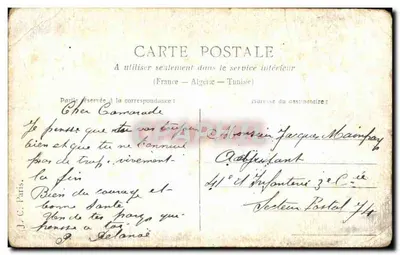 CARTE POSTALE
A utiliser seulement dans le service intérieur
(France - Algérie - Tunisie)
Partie réservée à la correspondance :
Adresse du destinataire :
Cher Camarade
Je pense que tu vas toujours
bien et que tu ne t'ennuie
pas de trop, vivement
la fin
Bien du courage et
bonne santé
de tes pays qui
pense a toi
Monsieur Jacques
Adjudant
41e d'Infanterie 3e Cie
Secteur Postal 74
J. C. Paris.